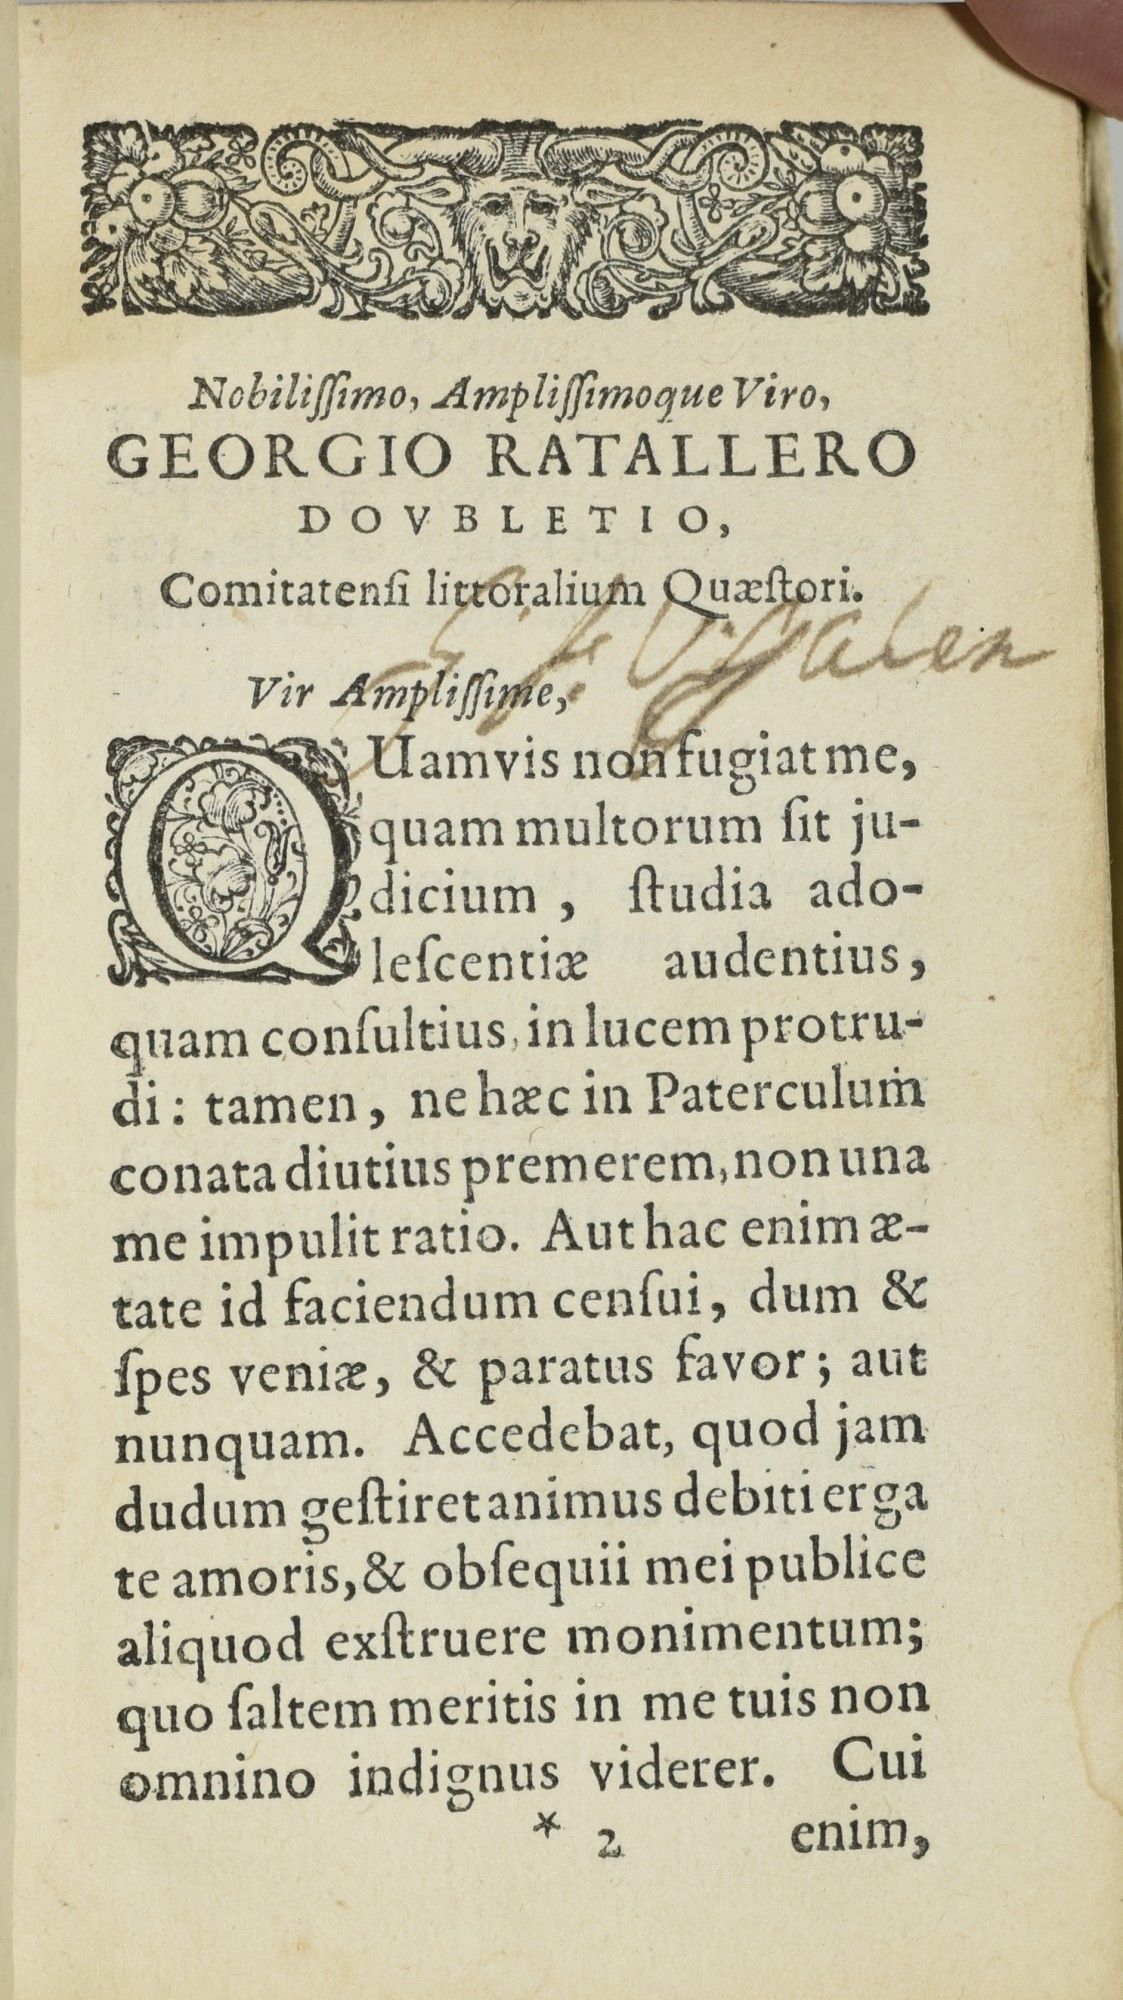 Nobiliſſimo, Ampliſſimoque Viro,
GEORGIO RATALLERO
DOVBLETIO,
Comitatenſi littoralium Quæſtori.
Vir Ampliſſime,
QUamvis non fugiat me,
quam multorum ſit ju-
dicium, ſtudia ado-
leſcentiæ audentius,
quam conſultius, in lucem protru-
di: tamen, ne hæc in Paterculum
conata diutius premerem, non una
me impulit ratio. Aut hac enim æ-
tate id faciendum cenſui, dum &
ſpes veniæ, & paratus favor; aut
nunquam. Accedebat, quod jam
dudum geſtiret animus debiti erga
te amoris, & obſequii mei publice
aliquod exſtruere monimentum;
quo ſaltem meritis in me tuis non
omnino indignus viderer. Cui
* 2 enim,